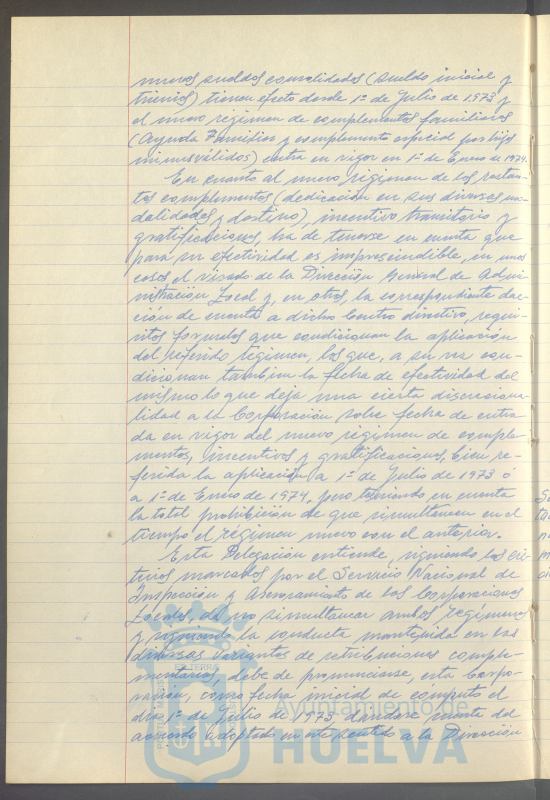 nuevos sueldos consolidados (sueldo inicial y
trienios) tienen efecto desde 1º de Julio de 1973 y
el nuevo régimen de complementos familiares
(Ayuda Familiar y complemento especial por hijos
minusválidos) entra en vigor en 1º de Enero de 1974.
En cuanto al nuevo régimen de los restan-
tes complementos (dedicación en sus diversas mo-
dalidades y destino), incentivo transitorio y
gratificaciones, ha de tenerse en cuenta que
para su efectividad es imprescindible, en unos
casos el visado de la Dirección General de Admi-
nistración Local y, en otros, la correspondiente dac-
ción de cuenta a dicho Centro directivo, requi-
sitos formales que condicionan la aplicación
del referido régimen, los que, a su vez con-
dicionan tambien la fecha de efectividad del
mismo lo que deja una cierta discreciona-
lidad a la Corporación sobre fecha de entra
da en vigor del nuevo régimen de comple-
mentos, incentivos y gratificaciones, bien re-
ferida la aplicación a 1º de Julio de 1973 ó
a 1º de Enero de 1974, pero teniendo en cuenta
la total prohibición de que simultaneen en el
tiempo el régimen nuevo con el anterior.
Esta Delegación entiende, siguiendo los cri-
terios marcados por el Servicio Nacional de
Inspección y Asesoramiento de las Corporaciones
Locales, de no simultanear ambos regímenes
y siguiendo la conducta mantenida en las
diversas variantes de retribuciones comple-
mentarias, debe de pronunciarse, esta Corpo-
ración, como fecha inicial de computo el
dia 1º de Julio de 1973 dandose cuenta del
acuerdo adoptado en este sentido a la Dirección
Ayuntamiento de
HUELVA